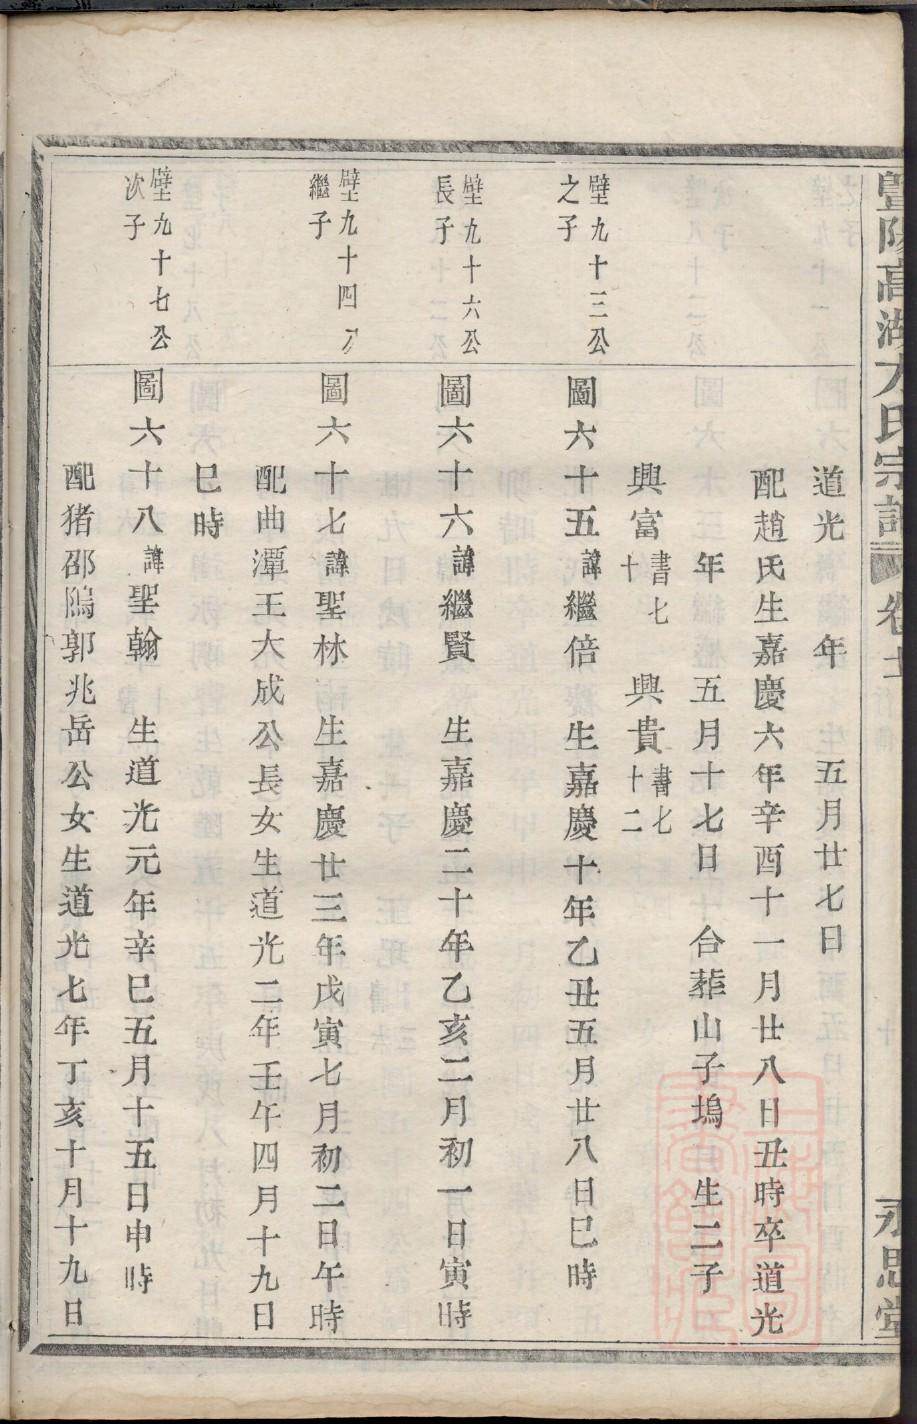 暨陽高湖方氏宗譜 卷 永思堂
道光 年 五月廿七日
配趙氏生嘉慶六年辛酉十一月廿八日丑時卒道光
年 五月十七日合葬山子塢 生二子
興富書七十 興貴書七十二
壁九十三公之子
圖六十五諱繼倍 生嘉慶十年乙丑五月廿八日巳時
壁九十六公長子
圖六十六諱繼賢 生嘉慶二十年乙亥二月初一日寅時
壁九十四公繼子
圖六十七諱聖林 生嘉慶廿三年戊寅七月初二日午時
配曲潭王大成公長女生道光二年壬午四月十九日
巳時
壁九十七公次子
圖六十八諱聖翰 生道光元年辛巳五月十五日申時
配猪邵隖郭兆岳公女生道光七年丁亥十月十九日